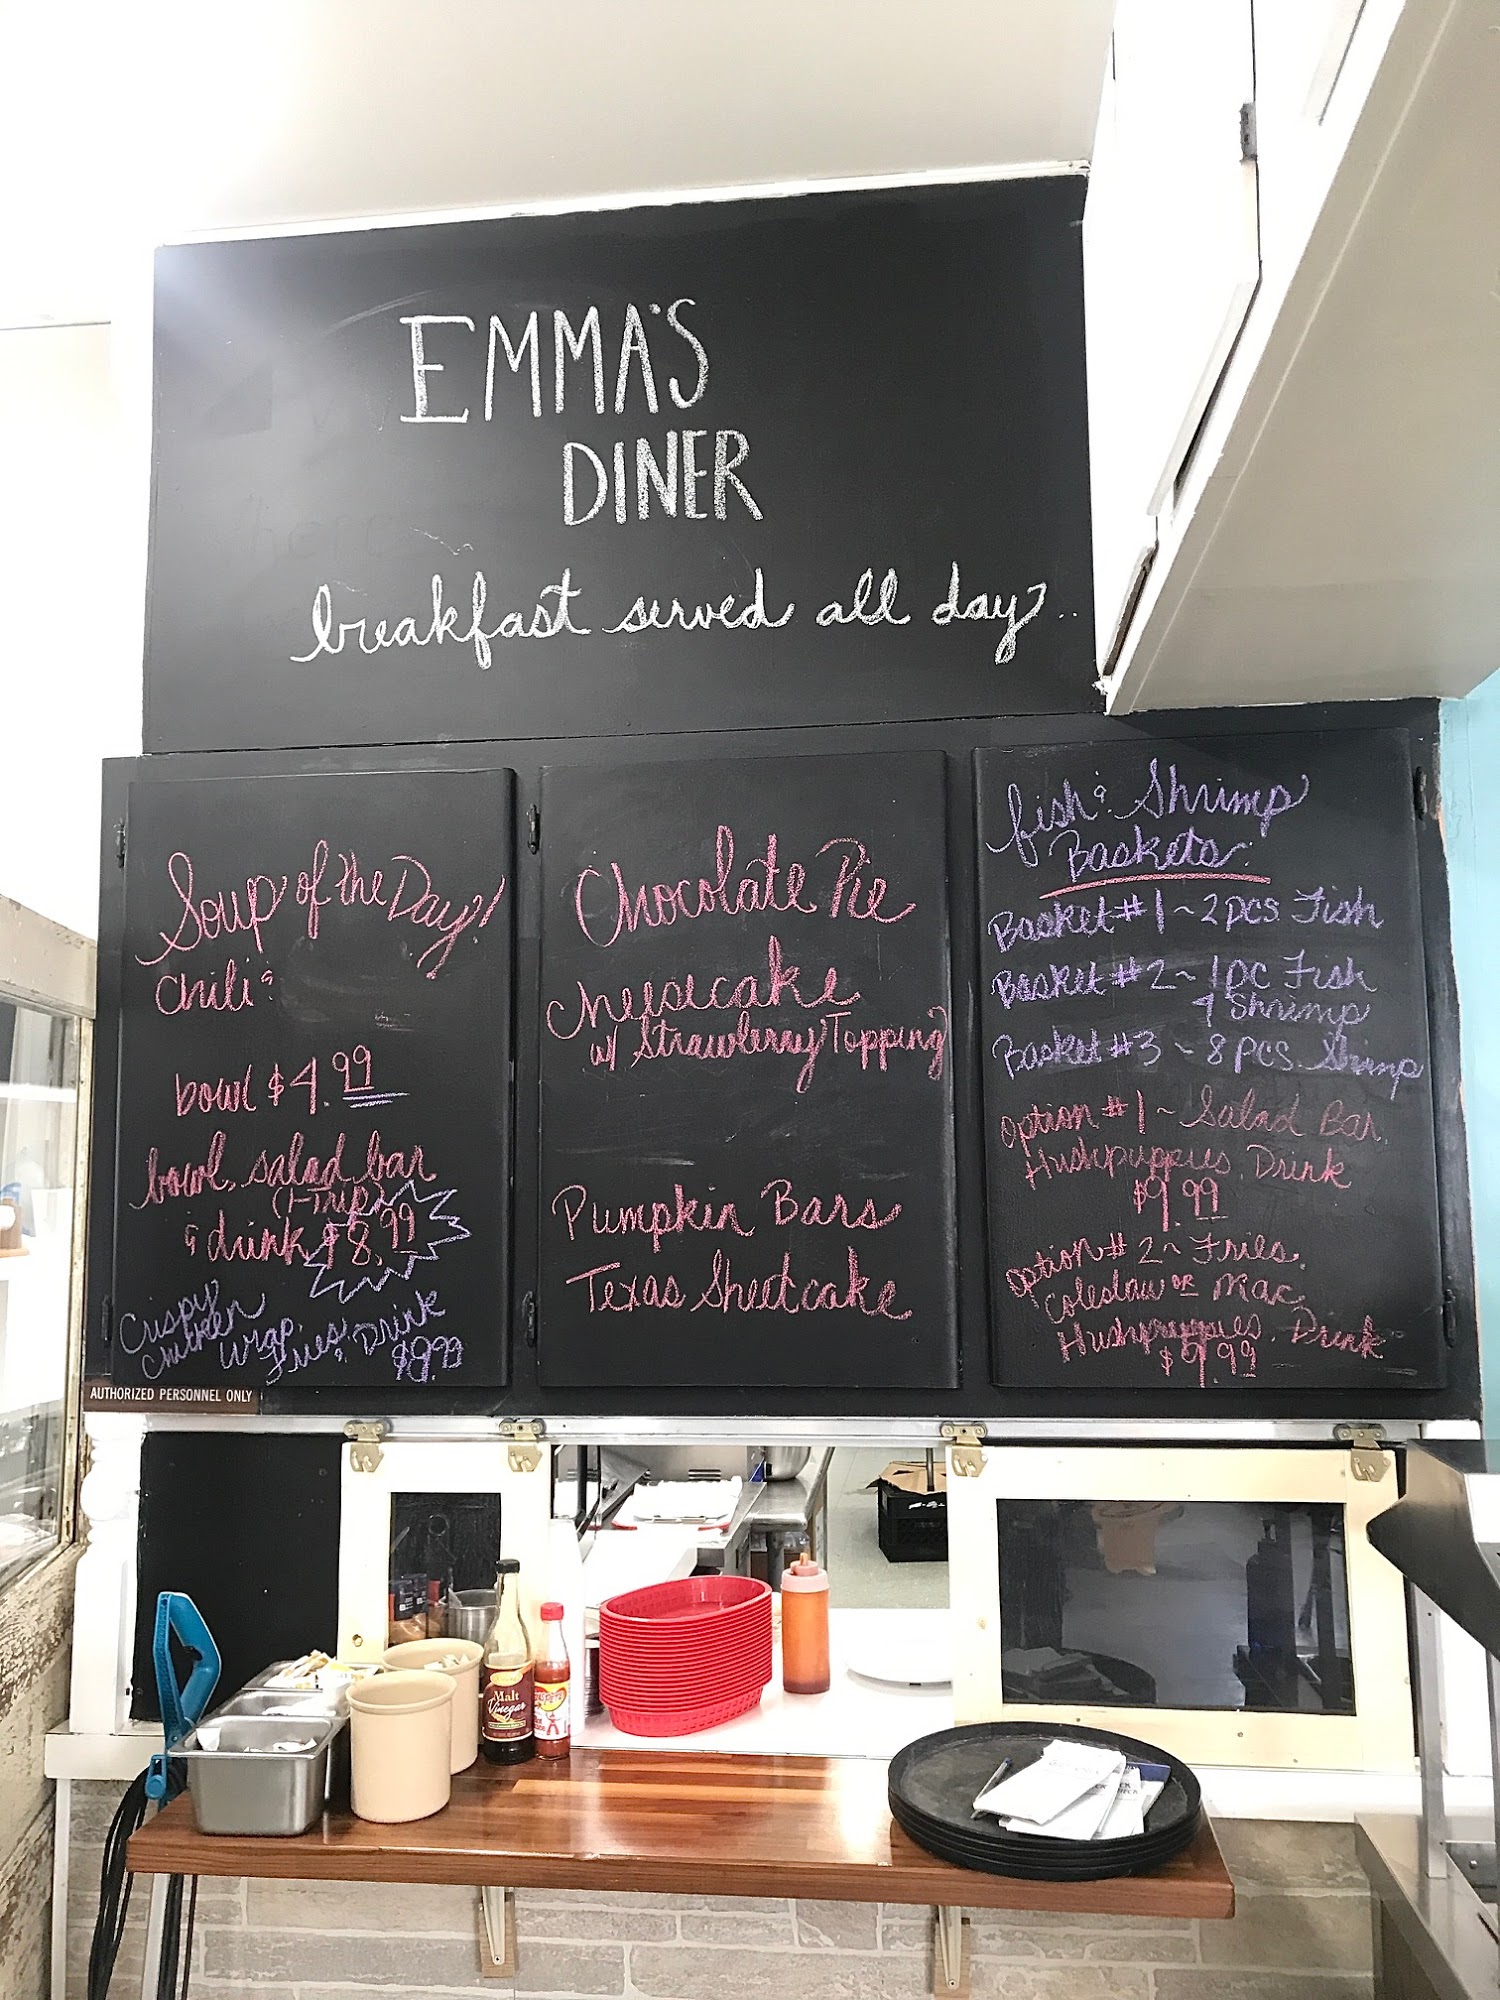 EMMA'S
DINER
breakfast served all day..
Soup of the Day!
Chili
bowl $4.99
bowl, salad bar
(1-Trip)
& drink $8.99
Crispy
Chicken Wrap,
Fries, Drink
$9.99
AUTHORIZED PERSONNEL ONLY
Chocolate Pie
Cheesecake
w/ Strawberry Topping
Pumpkin Bars
Texas Sheetcake
fish & Shrimp
Baskets:
Basket #1 ~ 2 pcs Fish
Basket #2 ~ 1 pc Fish
4 Shrimp
Basket #3 ~ 8 pcs. Shrimp
Option #1 ~ Salad Bar,
Hushpuppies, Drink
$9.99
Option #2 ~ Fries,
Coleslaw or Mac,
Hushpuppies, Drink
$9.99
Malt
Vinegar